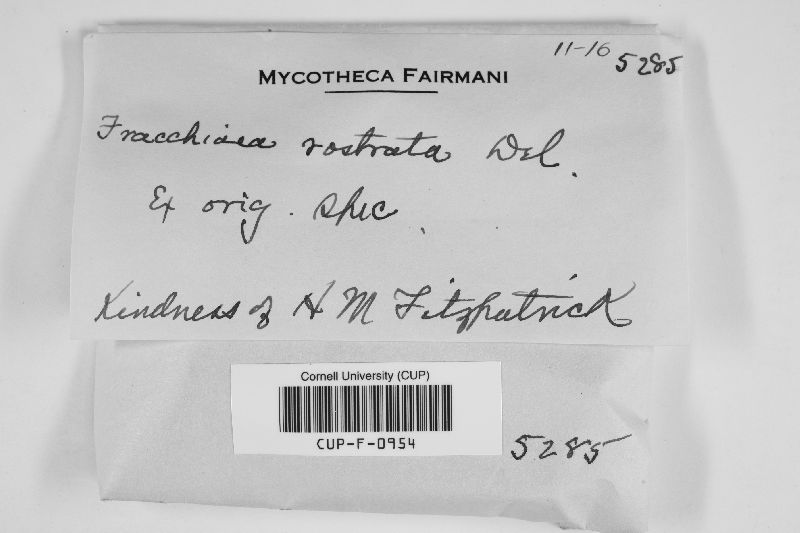 11-16 5285
MYCOTHECA FAIRMANI
Fracchiaea rostrata Del.
Ex orig. spec.
Kindness of H M Fitzpatrick
Cornell University (CUP)
CUP-F-0954
5285